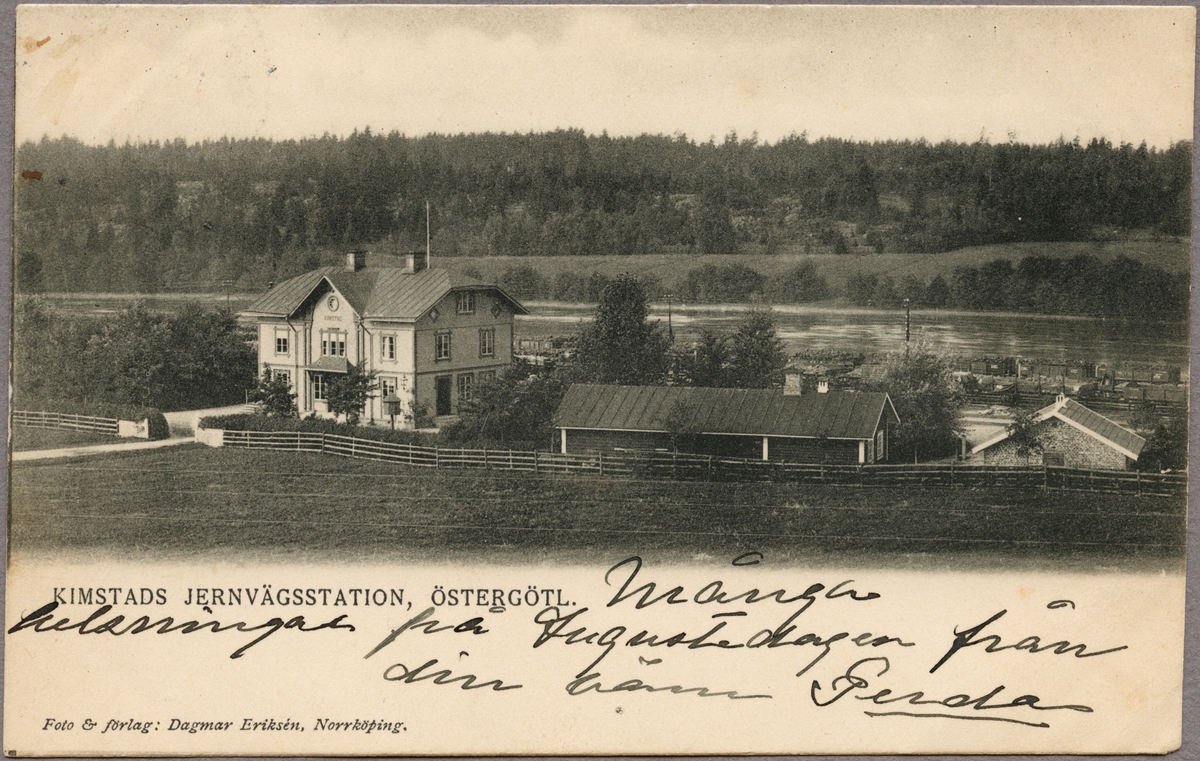 KIMSTAD
KIMSTADS JERNVÄGSSTATION, ÖSTERGÖTL. Många
helsningar på Augustedagen från
din vän Gerda
Foto & förlag: Dagmar Eriksén, Norrköping.